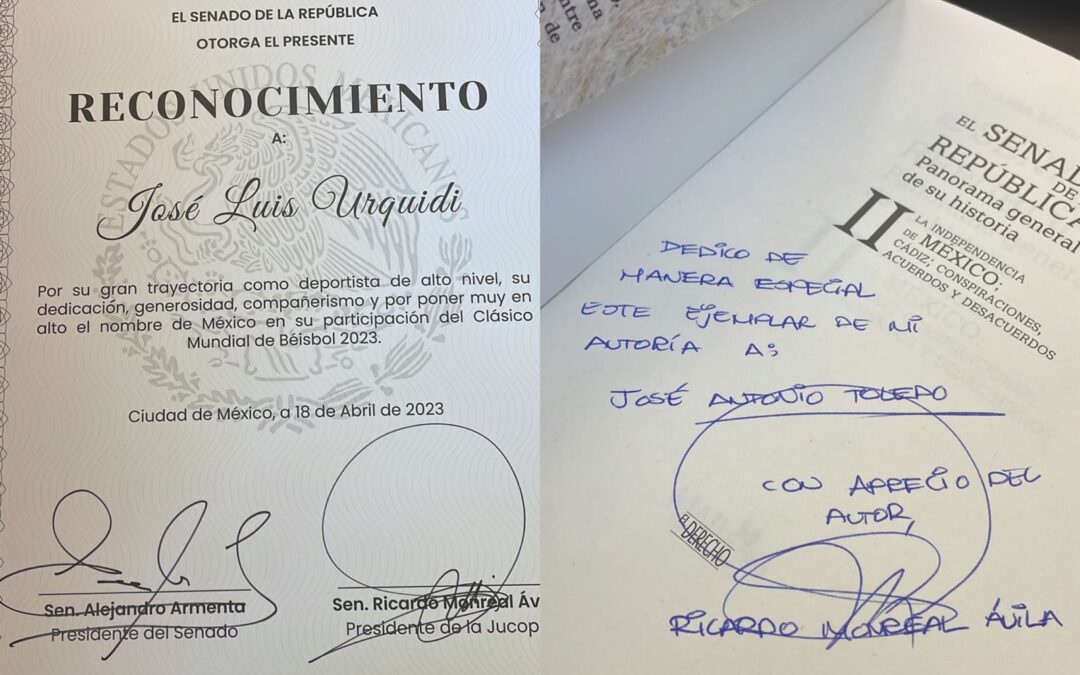 EL SENADO DE LA REPÚBLICA
OTORGA EL PRESENTE
RECONOCIMIENTO
A:
José Luis Urquidi
Por su gran trayectoria como deportista de alto nivel, su
dedicación, generosidad, compañerismo y por poner muy en
alto el nombre de México en su participación del Clásico
Mundial de Béisbol 2023.
Ciudad de México, a 18 de Abril de 2023
Sen. Alejandro Armenta
Presidente del Senado
Sen. Ricardo Monreal Áv
Presidente de la Jucop
ESTADOS UNIDOS MEXICANOS
entre
na
de
EL SENAD
DE
REPÚBLICA
Panorama general
de su historia
II
LA INDEPENDENCIA
DE MÉXICO,
CÁDIZ: CONSPIRACIONES,
ACUERDOS Y DESACUERDOS
DEDICO DE
MANERA ESPECIAL
ESTE EJEMPLAR DE MI
AUTORÍA A:
JOSÉ ANTONIO TOLEDO
CON APRECIO DEL
AUTOR,
EL DERECHO
RICARDO MONREAL ÁVILA